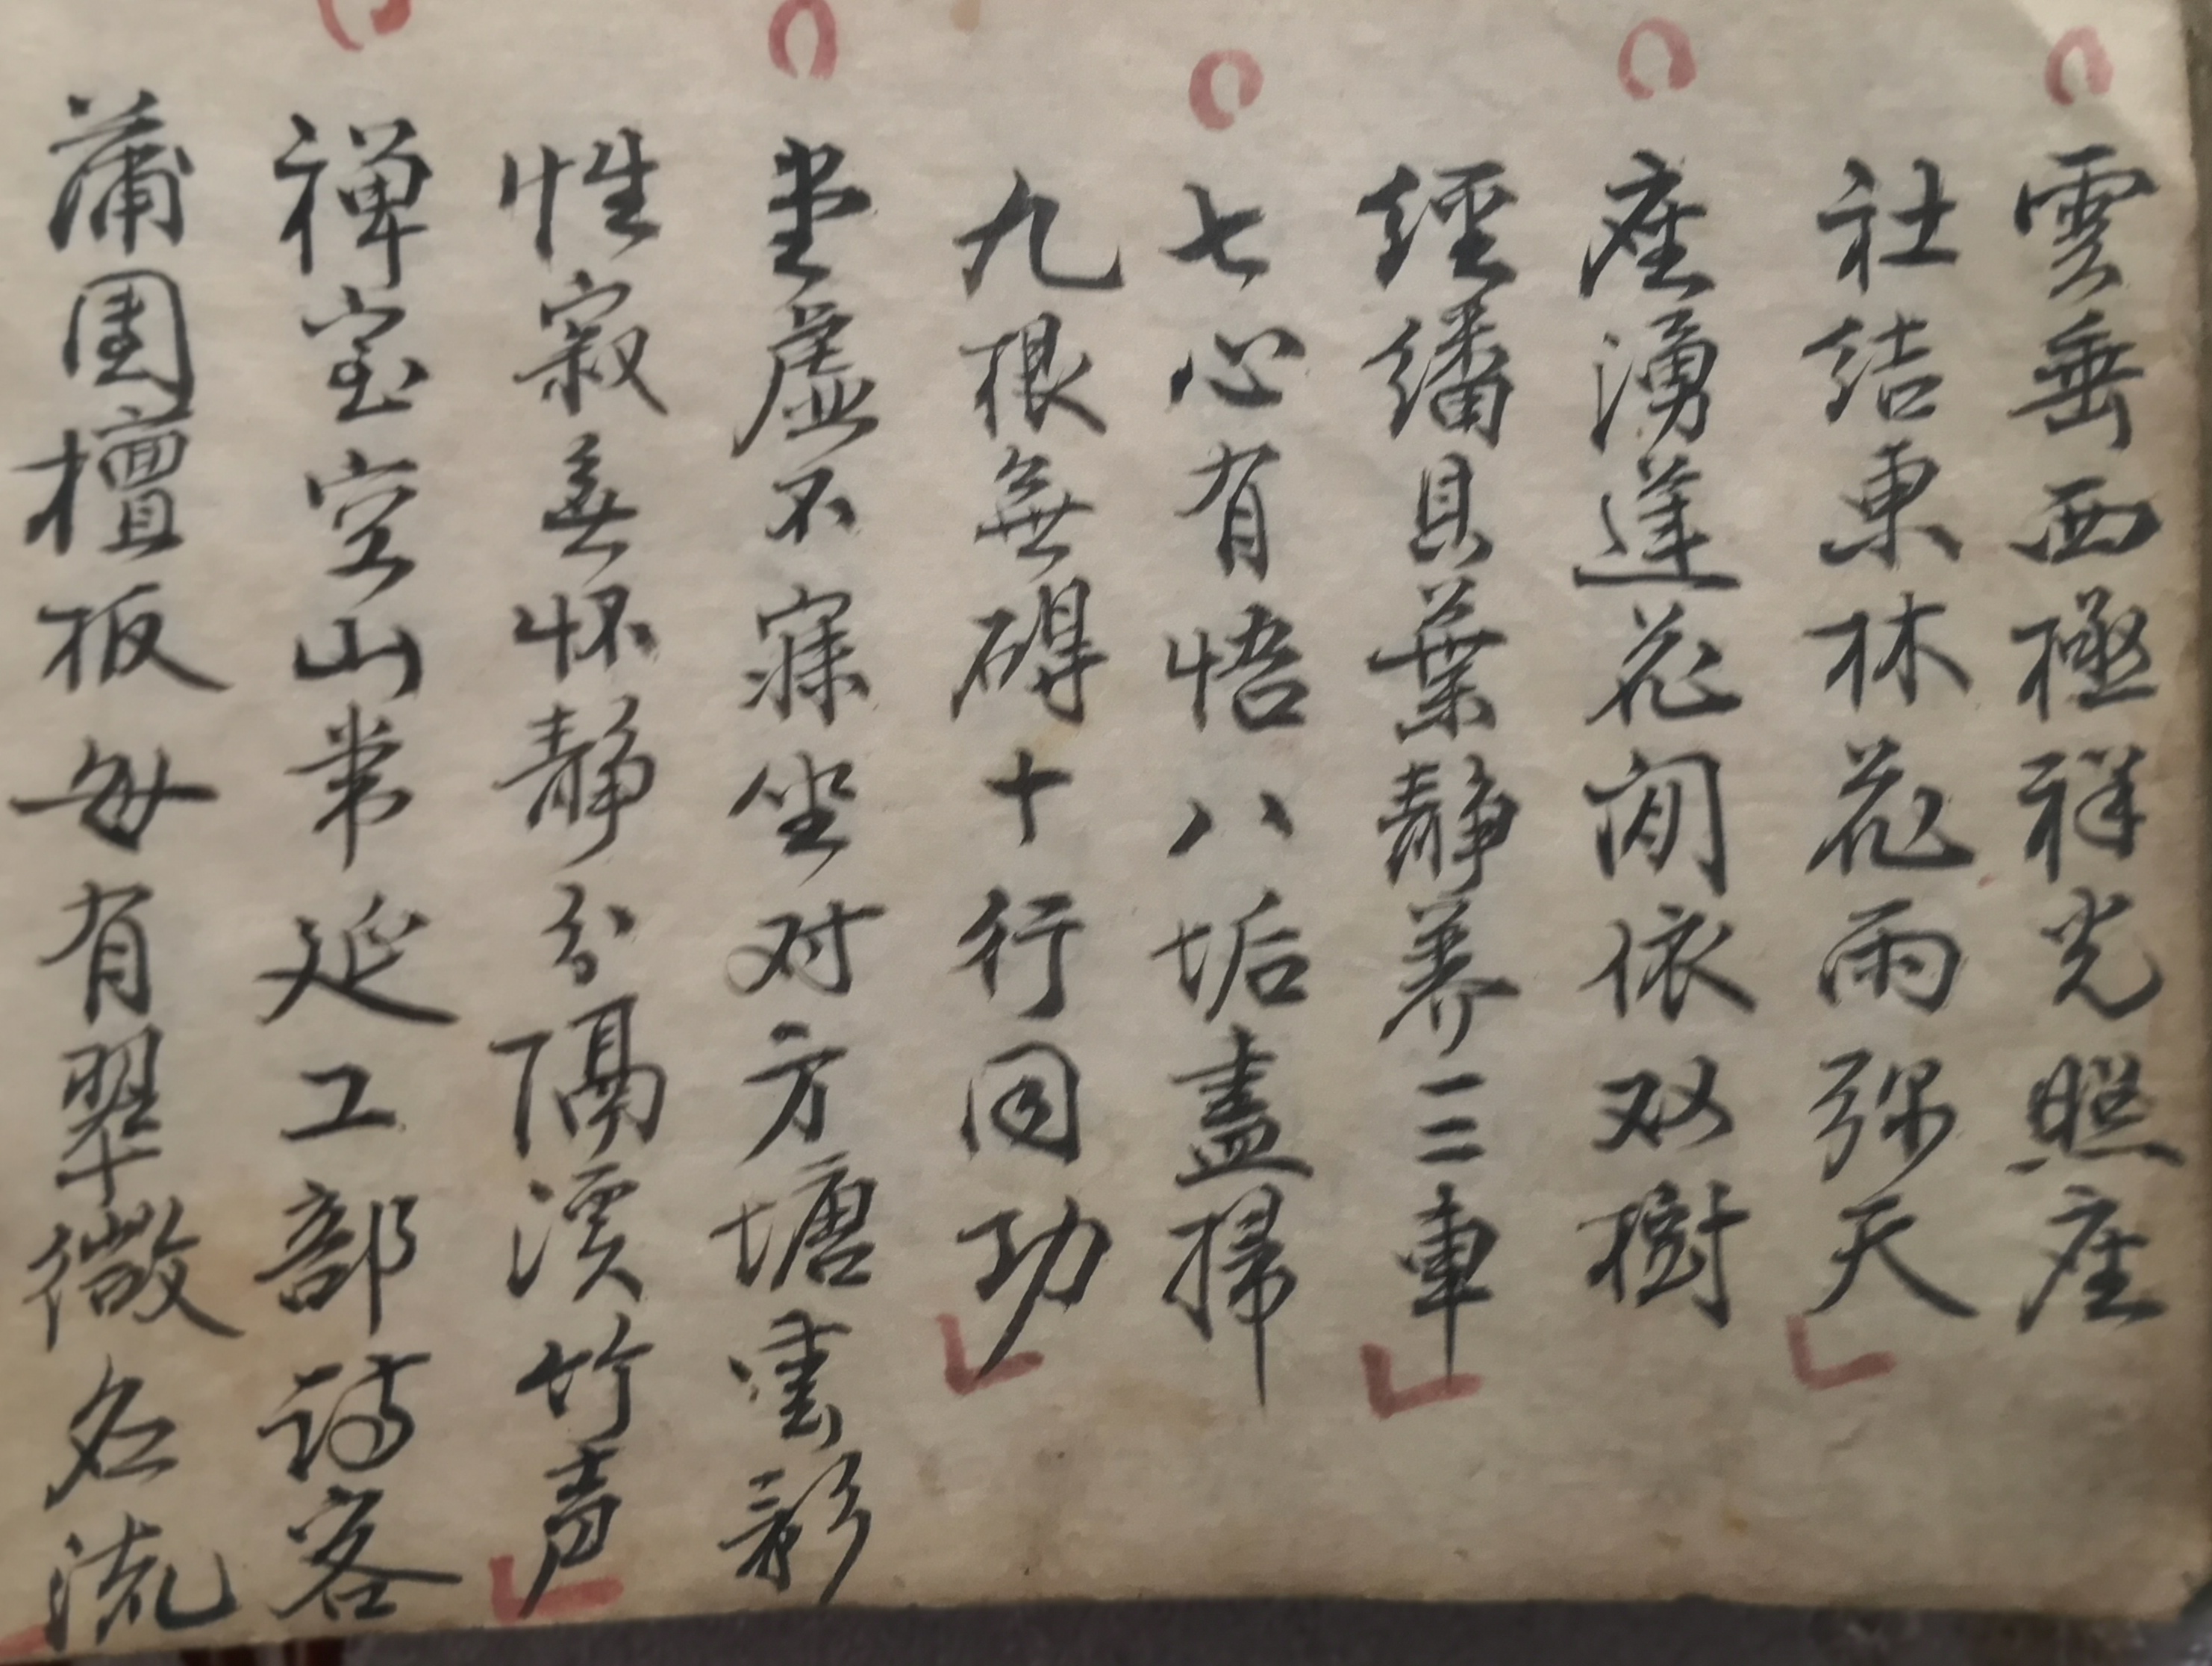 雲垂西極祥光照座
社结東林花雨弥天
座湧蓮花閒依双樹
經繙貝葉靜养三車
七心有悟八垢盡掃
九根無碍十行同功
堂虛不寐坐对方塘雲影
性寂無怀靜分隔溪竹声
禅室空山常延工部诗客
蒲团檀板每有翠微名流